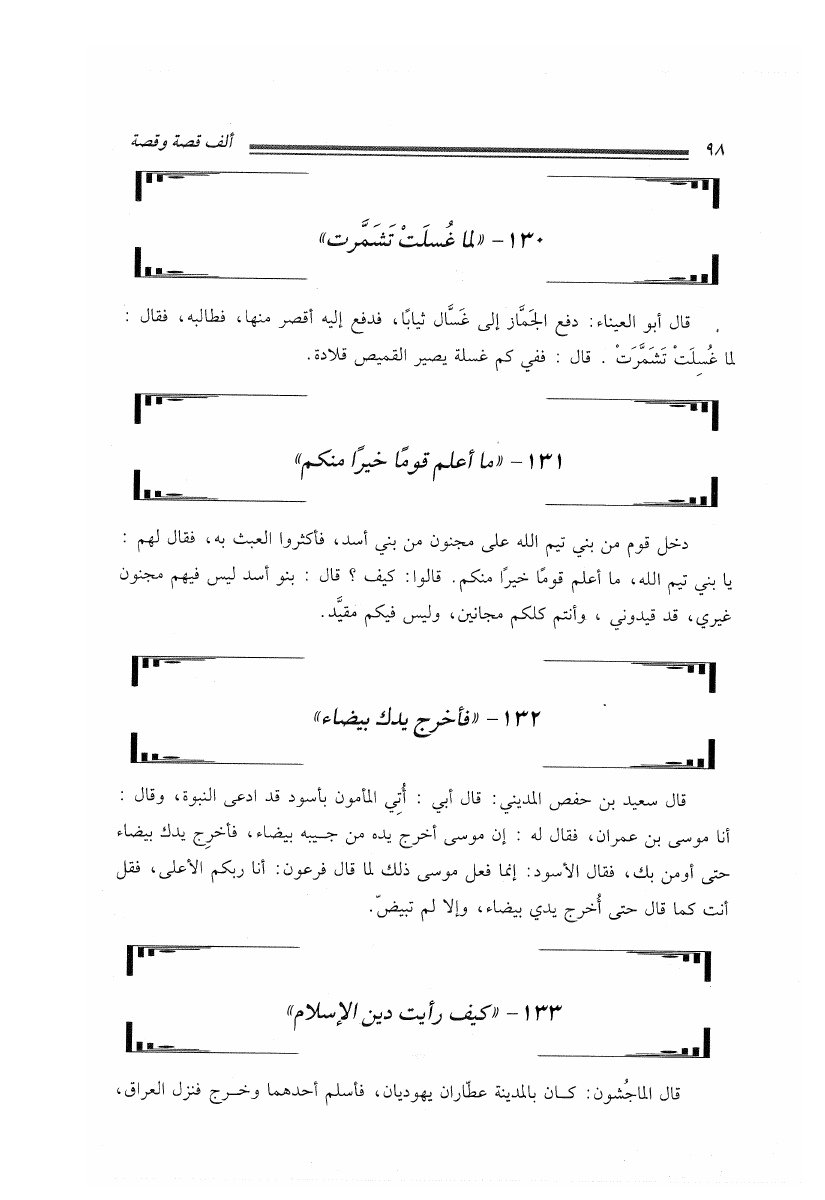 ٩٨ ألف قصة وقصة
١٣٠- «لما غُسلَتْ تَشَمَّرت»
قال أبو العيناء: دفع الجَمَّاز إلى غَسَّال ثيابًا، فدفع إليه أقصر منها، فطالبه، فقال :
لما غُسِلَتْ تَشَمَّرَتْ . قال : ففي كم غسلة يصير القميص قلادة.
١٣١- «ما أعلم قومًا خيرًا منكم»
دخل قوم من بني تيم الله على مجنون من بني أسد، فأكثروا العبث به، فقال لهم :
يا بني تيم الله، ما أعلم قومًا خيرًا منكم. قالوا: كيف ؟ قال : بنو أسد ليس فيهم مجنون
غيري، قد قيدوني ، وأنتم كلكم مجانين، وليس فيكم مقيَّد.
١٣٢- «فأخرج يدك بيضاء»
قال سعيد بن حفص المديني: قال أبي : أُتِي المأمون بأسود قد ادعى النبوة، وقال :
أنا موسى بن عمران، فقال له : إن موسى أخرج يده من جـيبه بيضاء، فأخرِج يدك بيضاء
حتى أومن بك، فقال الأسود: إنما فعل موسى ذلك لما قال فرعون: أنا ربكم الأعلى، فقل
أنت كما قال حتى أُخرج يدي بيضاء، وإلا لم تبيضّ.
١٣٣- «كيف رأيت دين الإسلام»
قال الماجُشون: كـان بالمدينة عطّاران يهوديان، فأسلم أحدهما وخـرج فنزل العراق،